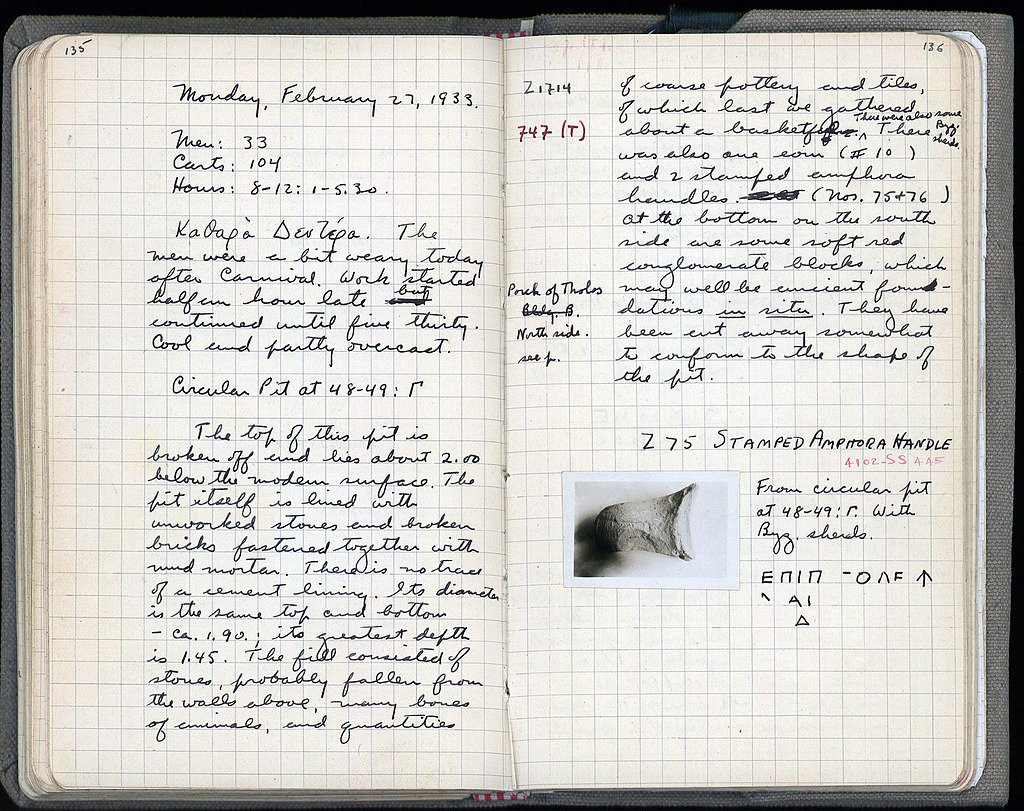 135
Monday, February 27, 1933.
Men: 33
Carts: 104
Hours: 8-12: 1-5.30.
Καθαρὰ Δευτέρα. The
men were a bit weary today
after Carnival. Work started
half an hour late but
continued until five thirty.
Cool and partly overcast.
Circular Pit at 48-49: Γ
The top of this pit is
broken off and lies about 2.00
below the modern surface. The
pit itself is lined with
unworked stones and broken
bricks fastened together with
mud mortar. There is no trace
of a cement lining. Its diameter
is the same top and bottom
- ca. 1.90.; its greatest depth
is 1.45. The fill consisted of
stones, probably fallen from
the walls above, many bones
of animals, and quantities
136
Z1714
747 (T)
of coarse pottery and tiles,
of which last we gathered
about a basketful. There were also some Byz. sherds. There
was also one coin (# 10 )
and 2 stamped amphora
handles. (Nos. 75+76 )
at the bottom on the south
side are some soft red
conglomerate blocks, which
may well be ancient foun-
dations in situ. They have
been cut away somewhat
to conform to the shape of
the pit.
Porch of Tholos
Bldg. B.
North side.
see p.
Z 75 STAMPED AMPHORA HANDLE
4102-SS 445
From circular pit
at 48-49: Γ. With
Byz. sherds.
ΕΠΙΠ ΟΛΕ
ΑΙ
Δ